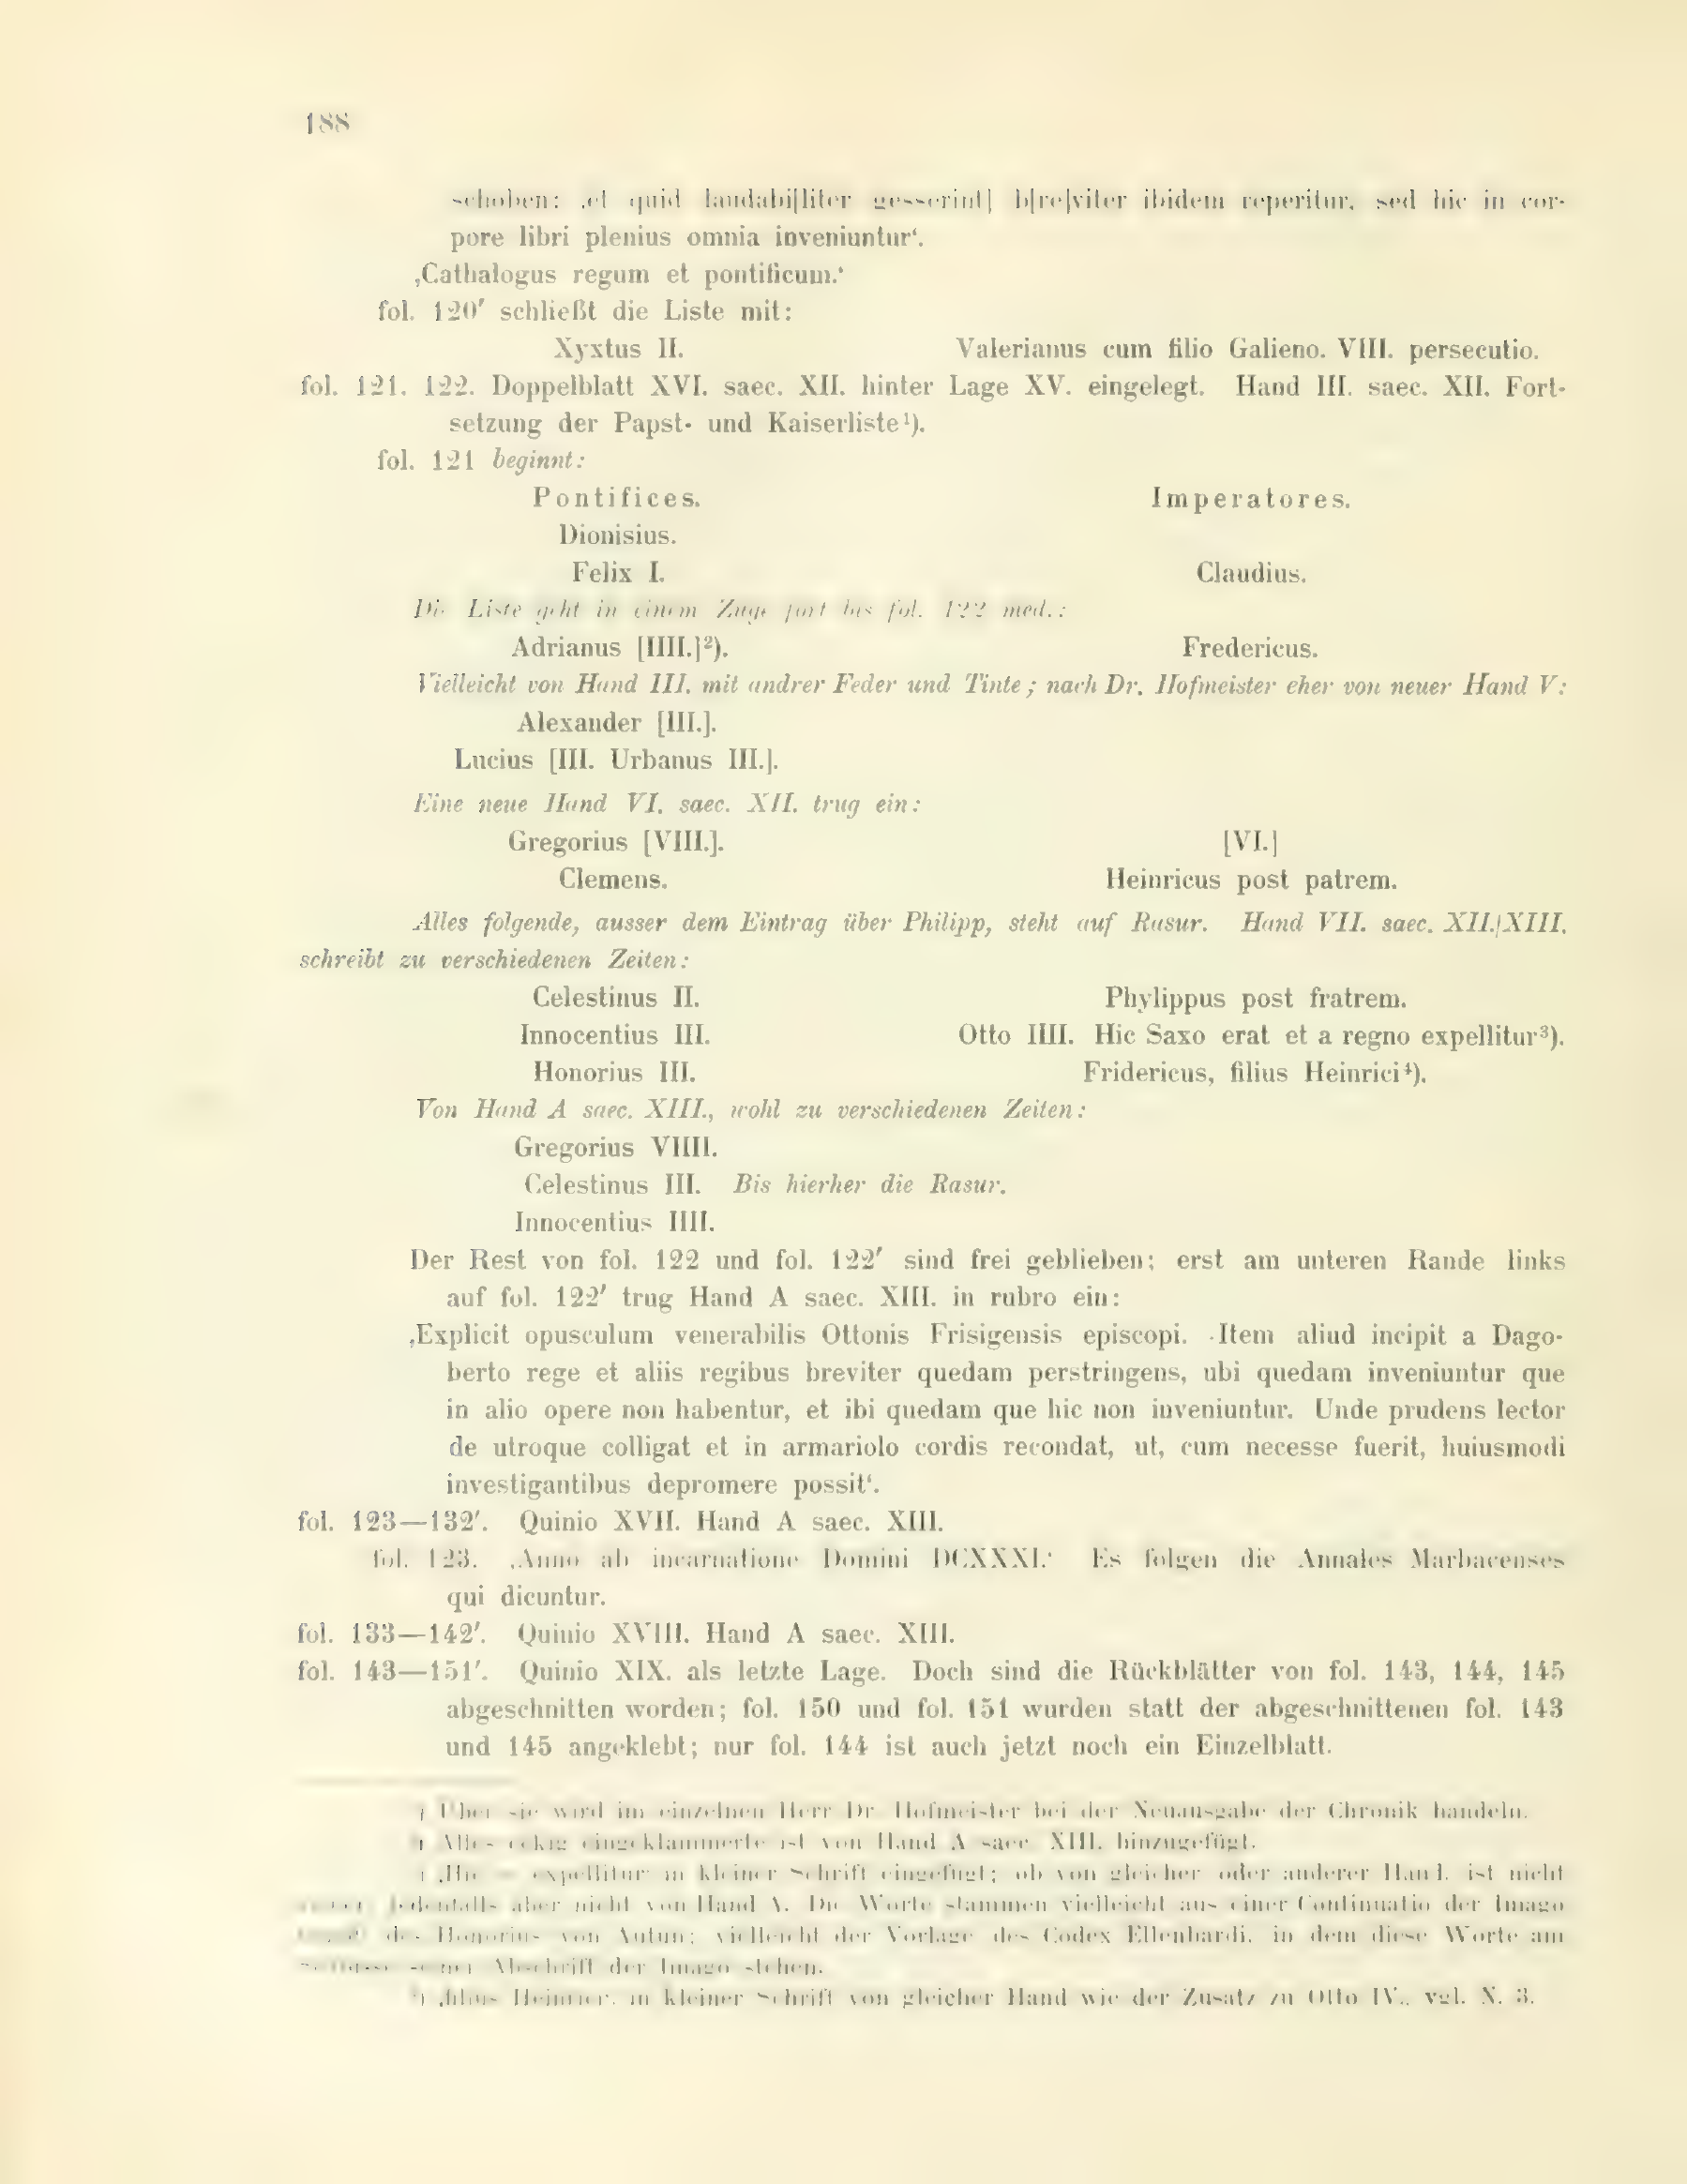 188
schoben: ‚et quid laudabi[liter gesserint] b[re]viter ibidem reperitur, sed hic in cor-
pore libri plenius omnia inveniuntur‘.
‚Cathalogus regum et pontificum.‘
fol. 120′ schließt die Liste mit:
Xyxtus II. Valerianus cum filio Galieno. VIII. persecutio.
fol. 121. 122. Doppelblatt XVI. saec. XII. hinter Lage XV. eingelegt. Hand III. saec. XII. Fort-
setzung der Papst- und Kaiserliste¹).
fol. 121 beginnt:
Pontifices. Imperatores.
Dionisius.
Felix I. Claudius.
Die Liste geht in einem Zuge fort bis fol. 122 med.:
Adrianus [IIII.]²). Fredericus.
Vielleicht von Hand III. mit andrer Feder und Tinte; nach Dr. Hofmeister eher von neuer Hand V:
Alexander [III.].
Lucius [III. Urbanus III.].
Eine neue Hand VI. saec. XII. trug ein:
Gregorius [VIII.]. [VI.]
Clemens. Heinricus post patrem.
Alles folgende, ausser dem Eintrag über Philipp, steht auf Rasur. Hand VII. saec. XII./XIII.
schreibt zu verschiedenen Zeiten:
Celestinus II. Phylippus post fratrem.
Innocentius III. Otto IIII. Hic Saxo erat et a regno expellitur³).
Honorius III. Fridericus, filius Heinrici⁴).
Von Hand A saec. XIII., wohl zu verschiedenen Zeiten:
Gregorius VIIII.
Celestinus III. Bis hierher die Rasur.
Innocentius IIII.
Der Rest von fol. 122 und fol. 122′ sind frei geblieben; erst am unteren Rande links
auf fol. 122′ trug Hand A saec. XIII. in rubro ein:
‚Explicit opusculum venerabilis Ottonis Frisigensis episcopi. Item aliud incipit a Dago-
berto rege et aliis regibus breviter quedam perstringens, ubi quedam inveniuntur que
in alio opere non habentur, et ibi quedam que hic non inveniuntur. Unde prudens lector
de utroque colligat et in armariolo cordis recondat, ut, cum necesse fuerit, huiusmodi
investigantibus depromere possit‘.
fol. 123—132′. Quinio XVII. Hand A saec. XIII.
fol. 123. ‚Anno ab incarnatione Domini DCXXXI.‘ Es folgen die Annales Marbacenses
qui dicuntur.
fol. 133—142′. Quinio XVIII. Hand A saec. XIII.
fol. 143—151′. Quinio XIX. als letzte Lage. Doch sind die Rückblätter von fol. 143, 144, 145
abgeschnitten worden; fol. 150 und fol. 151 wurden statt der abgeschnittenen fol. 143
und 145 angeklebt; nur fol. 144 ist auch jetzt noch ein Einzelblatt.
) Über sie wird im einzelnen Herr Dr. Hofmeister bei der Neuausgabe der Chronik handeln.
) Alles eckig eingeklammerte ist von Hand A saec. XIII. hinzugefügt.
) ‚Hic — expellitur‘ in kleiner Schrift eingefügt; ob von gleicher oder anderer Hand, ist nicht
jedenfalls aber nicht von Hand A. Die Worte stammen vielleicht aus einer Continuatio der Imago
des Honorius von Autun; vielleicht der Vorlage des Codex Ellenhardi, in dem diese Worte am
Schlusse seiner Abschrift der Imago stehen.
⁴) ‚filius Heinrici‘ in kleiner Schrift von gleicher Hand wie der Zusatz zu Otto IV., vgl. N. 3.